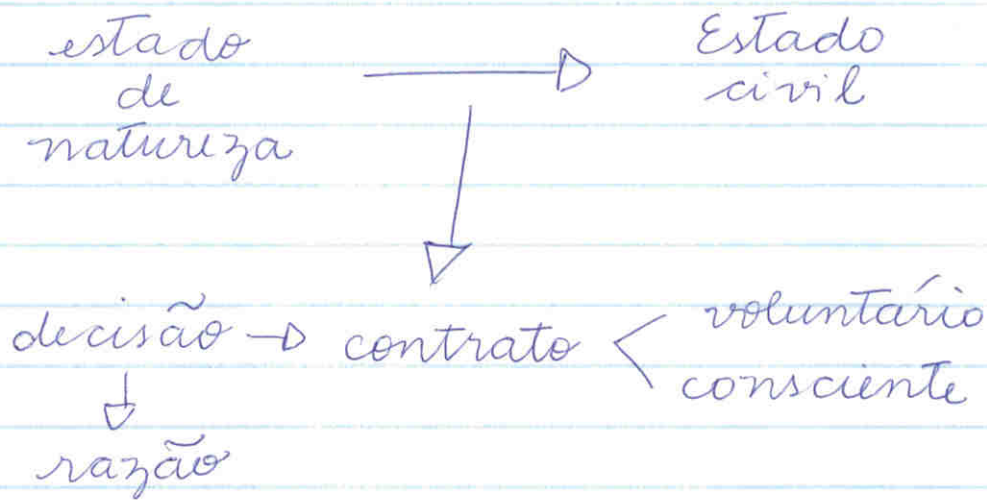 estado
de
natureza
Estado
civil
decisão
contrato
voluntário
consciente
razão